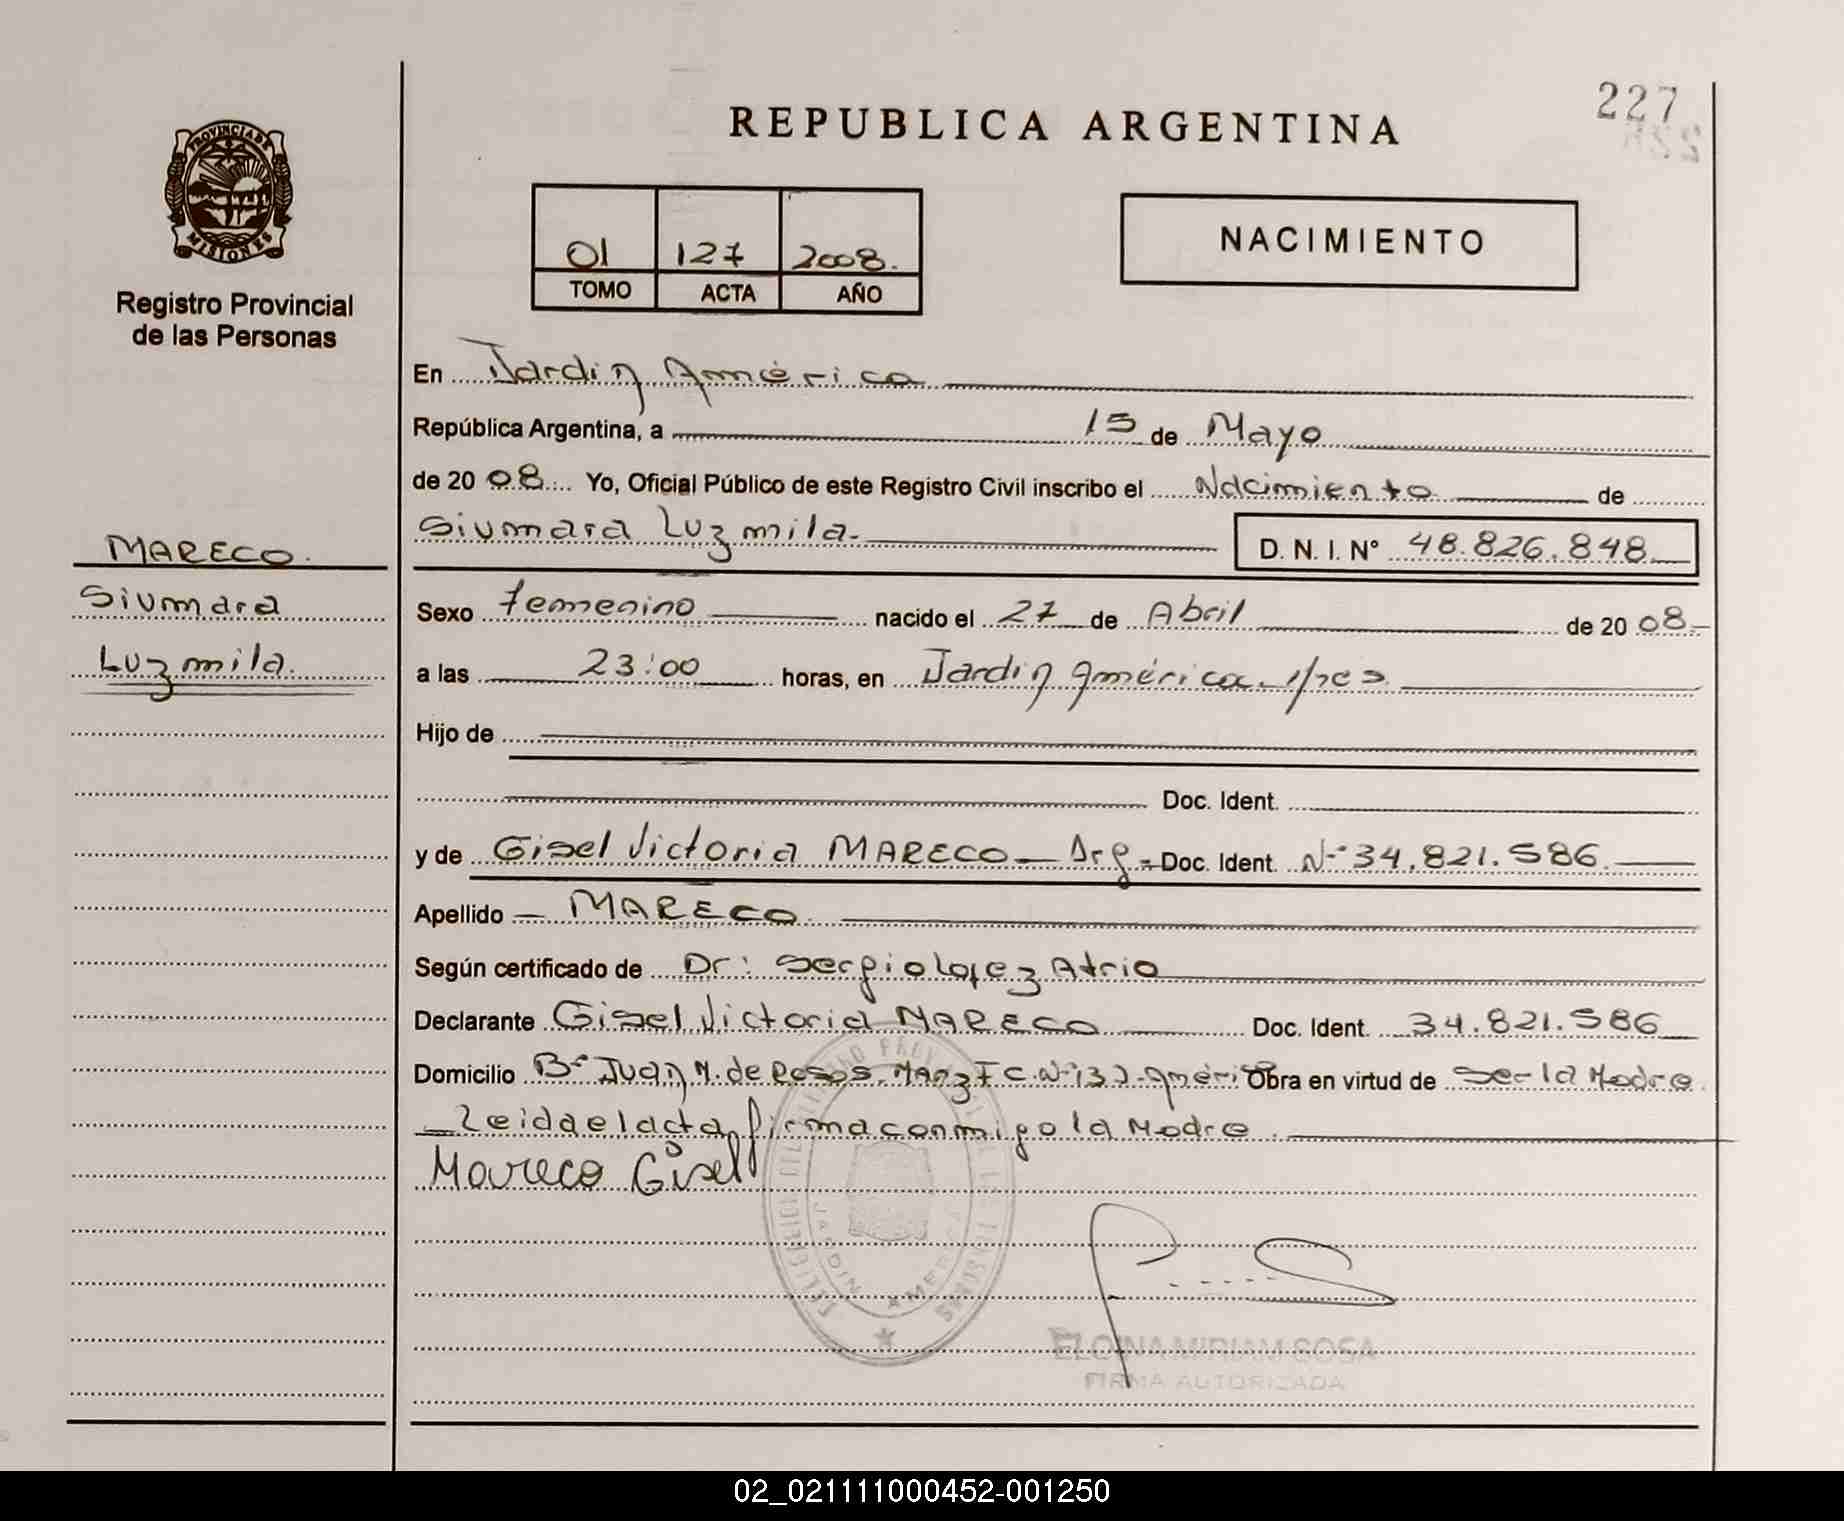 227
REPUBLICA ARGENTINA
PROVINCIA DE
MISIONES
Registro Provincial
de las Personas
01 127 2008.
TOMO ACTA AÑO
NACIMIENTO
En Jardin América
República Argentina, a 15 de Mayo
de 20 08 Yo, Oficial Público de este Registro Civil inscribo el Nacimiento de
Siumara Luzmila.
D. N. I. N° 48.826.848
MARECO.
Siumara
Luzmila.
Sexo Femenino nacido el 27 de Abril de 20 08
a las 23:00 horas, en Jardin América
Hijo de
Doc. Ident.
y de Gisel Victoria MARECO Arg Doc. Ident. N° 34.821.586.
Apellido MARECO
Según certificado de Dr: Sergio Lopez Atrio
Declarante Gisel Victoria MARECO Doc. Ident. 34.821.586
Domicilio B° Juan M. de Rosas. Manz F C. N° Améri Obra en virtud de ser la Madre
Leida el acta firma conmigo la Madre.
Mareco Gisel
JARDIN AMERICA
MIRIAM SOSA
FIRMA AUTORIZADA
02_021111000452-001250